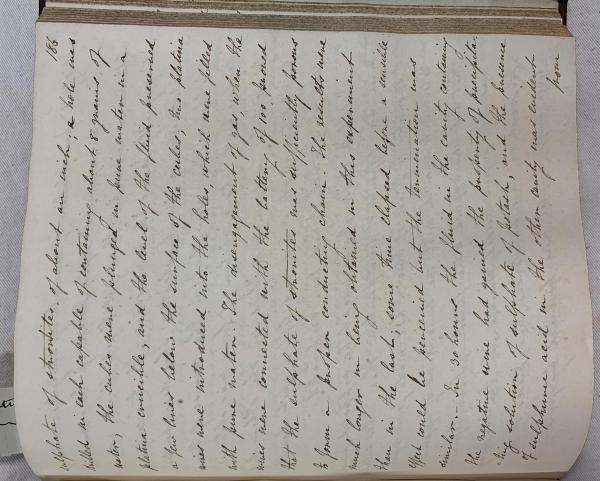 186
sulphate of strontites, of about an inch; a hole was
drilled in each capable of containing about 8 grains of
water; the cubes were plunged in pure water in a
platina crucible, and the level of the fluid preserved
a few lines below the surface of the cubes; two platina
wires were introduced into the holes, which were filled
with pure water. The disengagement of gas, when the
wires were connected with the battery of 100, proved
that the sulphate of strontites was sufficiently porous
to form a proper conducting chain. The results were
much longer in being obtained in this experiment
than in the last; some time elapsed before a sensible
effect could be perceived but the termination was
similar. In 30 hours the fluid in the cavity containing
the negative wire had gained the property of precipita-
ting solution of sulphate of potash, and the presence
of sulphuric acid in the other cavity was evident
from